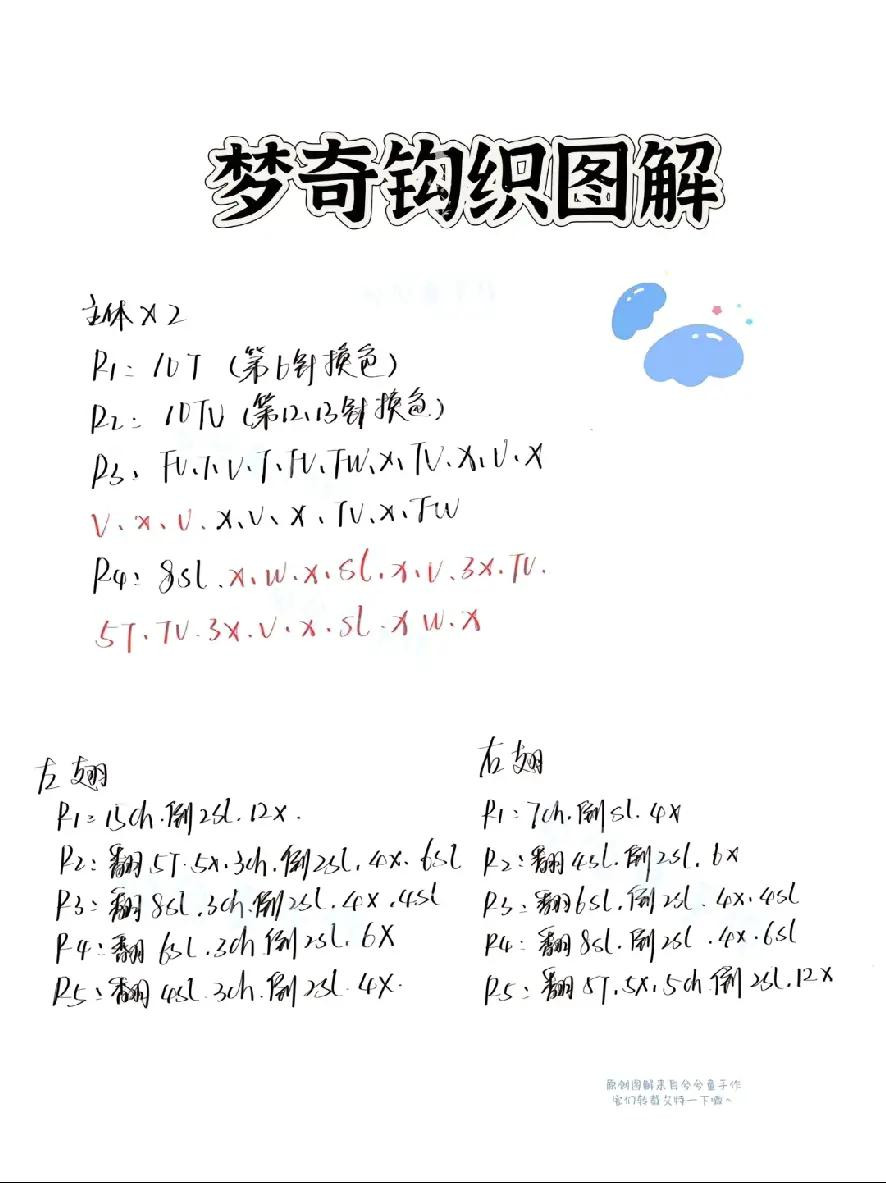 梦奇钩织图解
主体X2
R1: 10T (第6针换色)
R2: 10TV (第12、13针换色)
R3: FV、T、V、T、FV、TW、X、TV、X、V、X
V、X、V、X、V、X、TV、X、TW
R4: 8sl、X、W、X、sl、X、V、3X、TV、
5T、TV、3X、V、X、sl、X W、X
左翅
R1: 15ch.倒2sl.12X.
R2: 翻5T.5X.3ch.倒2sl.4X.6sl
R3: 翻8sl.3ch.倒2sl.4X.4sl
R4: 翻6sl.3ch.倒2sl.6X
R5: 翻4sl.3ch.倒2sl.4X.
右翅
R1: 7ch.倒sl.4X
R2: 翻4sl.倒2sl.6X
R3: 翻6sl.倒2sl.4X.4sl
R4: 翻8sl.倒2sl.4X.6sl
R5: 翻5T.5X.5ch.倒2sl.12X
原创图解来自兮兮鱼手作
宝们转载艾特一下嗷~